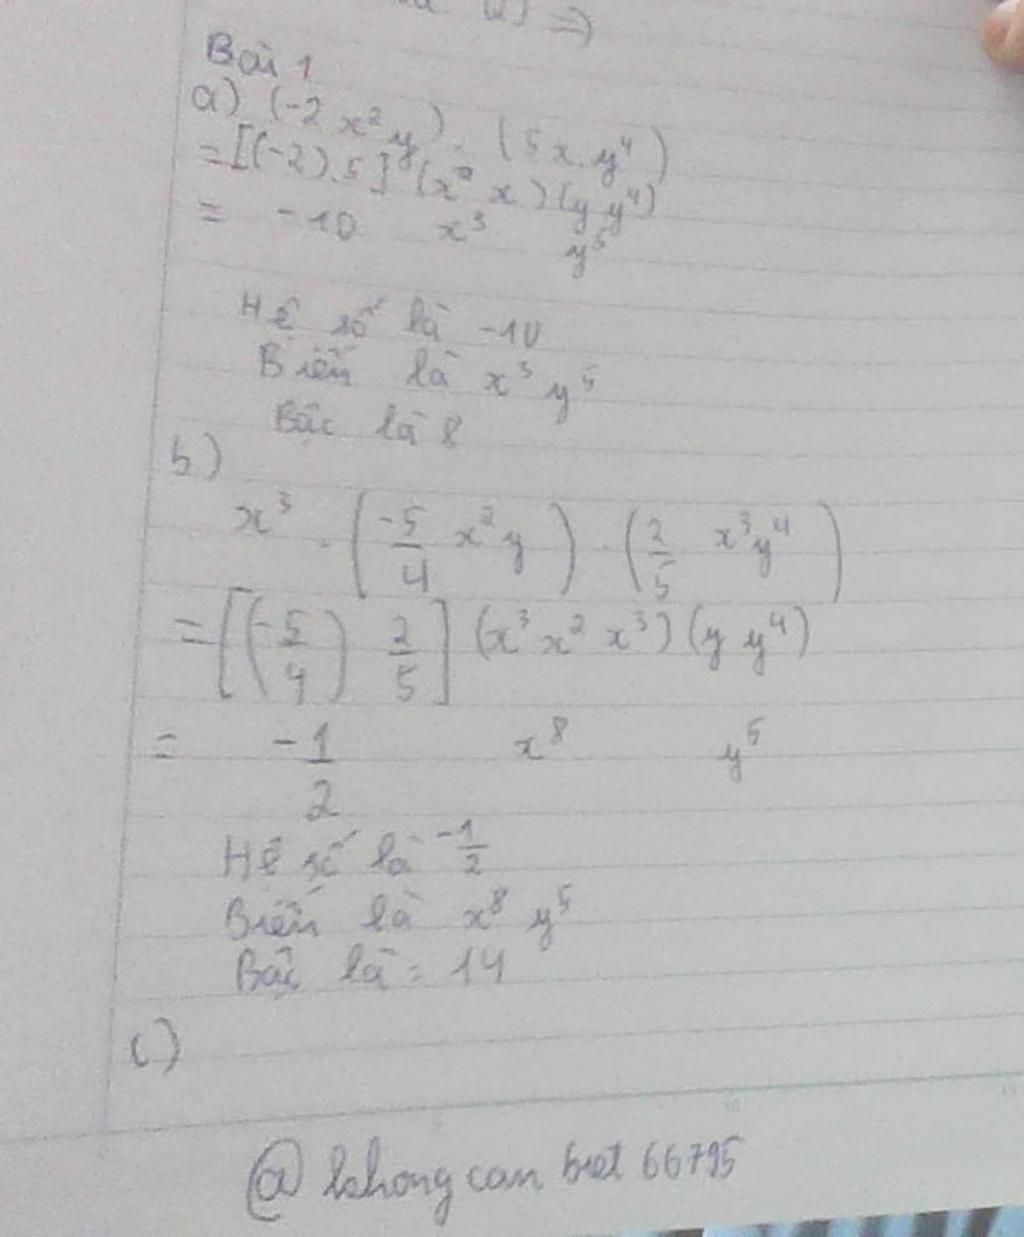 2) ⇒
Bài 1
a) (-2 x² y) . (5 x y⁴)
= [(-2).5] (x² x) (y y⁴)
= -10 x³ y⁵
Hệ số là -10
Biến là x³ y⁵
Bậc là 8
b)
x³ . (-5/4 x² y) . (2/5 x³ y⁴)
= [(-5/4) 2/5] (x³ x² x³) (y y⁴)
= -1/2 x⁸ y⁵
Hệ số là -1/2
Biến là x⁸ y⁵
Bậc là = 14
c)
@ khong can biet 66795